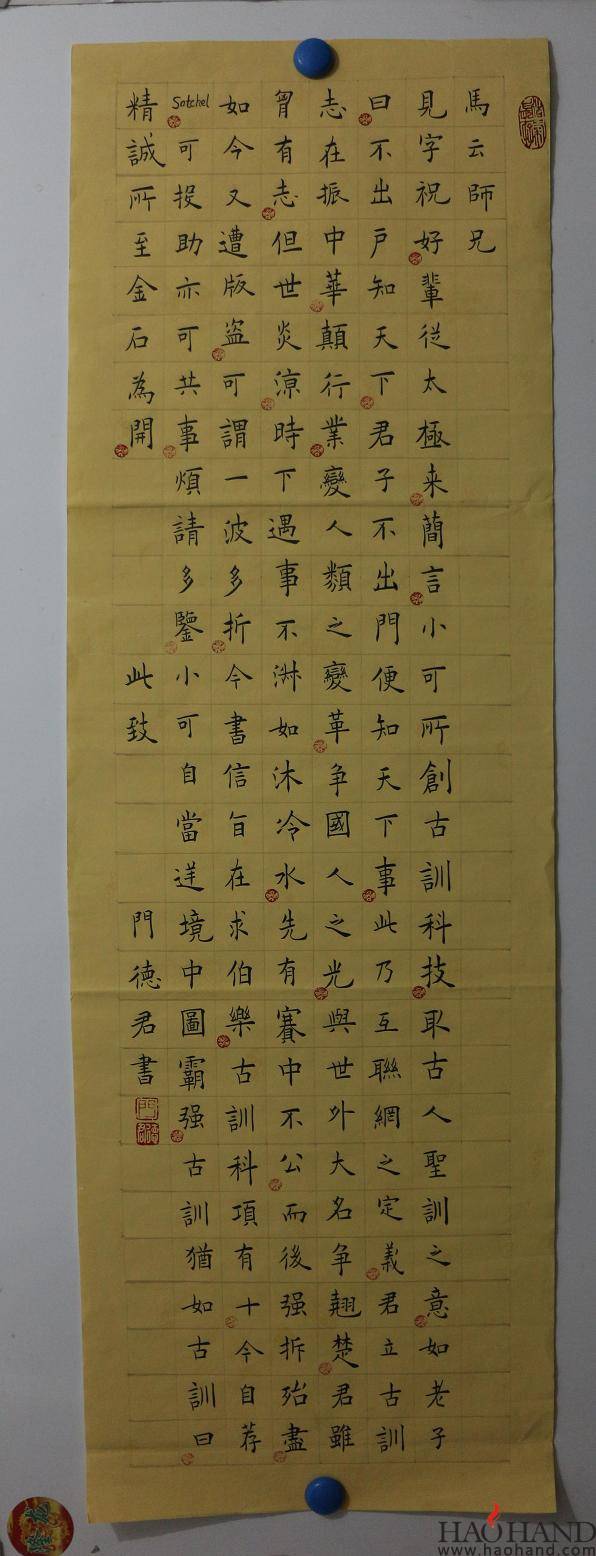 馬云師兄
見字祝好輩從太極来蕳言小可所創古訓科技取古人聖訓之意如老子
曰不出戶知天下君子不出門便知天下事此乃互聯網之定義君立古訓
志在振中華顛行業變人類之變革争國人之光與世外大名争翹楚君雖
胷有志但世炎涼時下遇事不淋如沐冷水先有賽中不公而後强拆殆盡
如今又遭版盗可謂一波多折今書信旨在求伯樂古訓科項有十今自荐
Satchel可投助亦可共事煩請多鑒小可自當送境中圖霸强古訓猶如古訓曰
精誠所至金石為開 此致 門德君書
HAOHAND
www.haohand.com